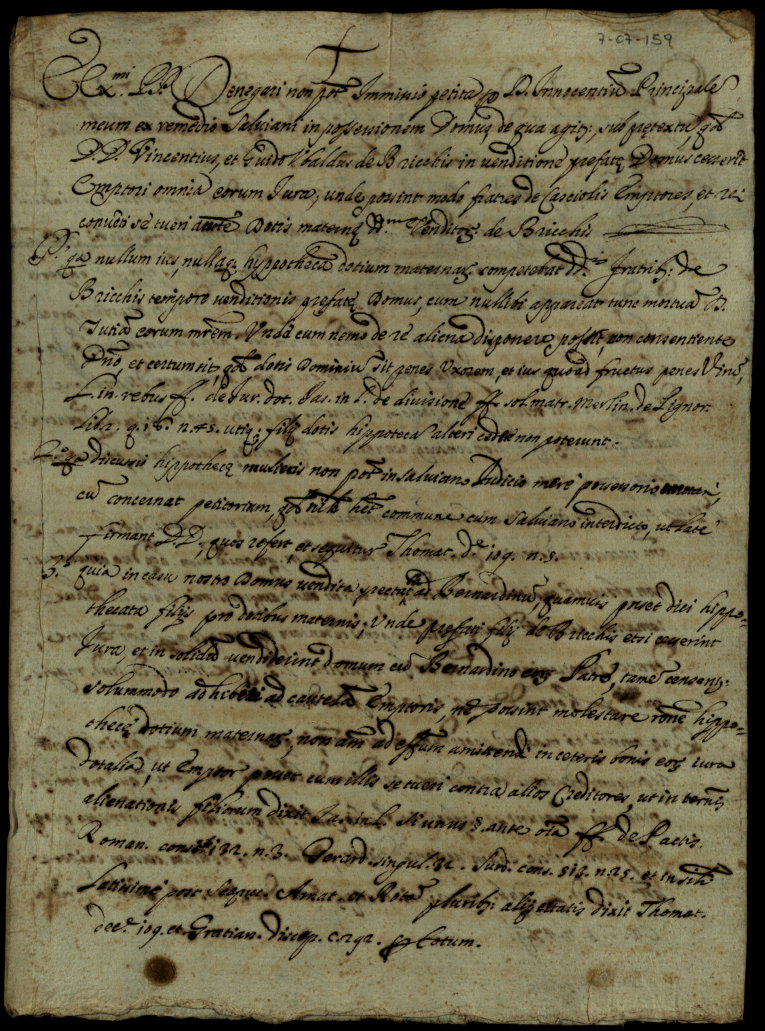 7-07-159
Ex.mi PP. Denegari non pot Immissio petita per D. Innocentiu Principale
meum ex remedio Salviani in possessionem Domus, de qua agitr, sub pretextu, qd
D.D. Vincentius, et Guido Ubaldus de Bricchis in venditione prefatę Domus cesserit
Emptori omnia eorum Jura, unde possint modo fratres de Casciolis Emptores, et rei
conventi se tueri Dotis maternę dd.m Venditor. de Bricchis
P.o qa nullum ius, nullaq hyppotheca dotium maternar. competebat dd.is fratribq de
Bricchis tempore venditionis prefatę Domus, cum nullibi appareat tunc mortua D.
eorum mrem. Unde cum nemo de re aliena disponere possit, non consentiente
Dno, et certum sit, qd dotis Dominiu sit penes Uxorem, et ius quoad fructus penes Viru,
L. in rebus ff. de Jur. dot. Jas. in L. de divisione ff. sol. matr. Merlin. de Pignor.
lib. 2. q. n. 45. utiq filij dotis hippoteca alteri cedere non poterunt.
2.o qa discussio hippothecę mulieris non pot in Salviano Judicio mere possessorio
cu concernat petitorium, qd nihil het commune cum Salviano interdicto, ut late
firmant D.D. quos refert, et sequitur Thomat. De. 109. n. 5.
3.o quia in casu nostro Domus vendita spectat ad Bernardinu quamvis posset dici hippo=
thecata filijs pro dotibus maternis; Unde prefati filij de Bricchis etsi cesserint
Jura, et in solidu vendiderint domum cu Bernardino eor. Patre, tame censentr
solummodo adhibiti ad cautela Emptoris, ne possint molestare rone hippo=
thecę dotium maternar., non am ad effum amittendi in ceteris bonis eor. iura
dotalia, ut Emptor posset cum illis se tueri contra alios Creditores, ut in terns
alienationis filiorum dixit Jas. in L. si unus §. ante oia ff. de Pactis.
Roman. cons. 132. n. 3. Gerard. singul. 32. Surd. cons. 512. n. 25. et
Latissime post Seque. Amat. et Rota pluribq alijs citatis dixit Thomat.
dec. 109. et Gratian. discep. c. 292. per totum.